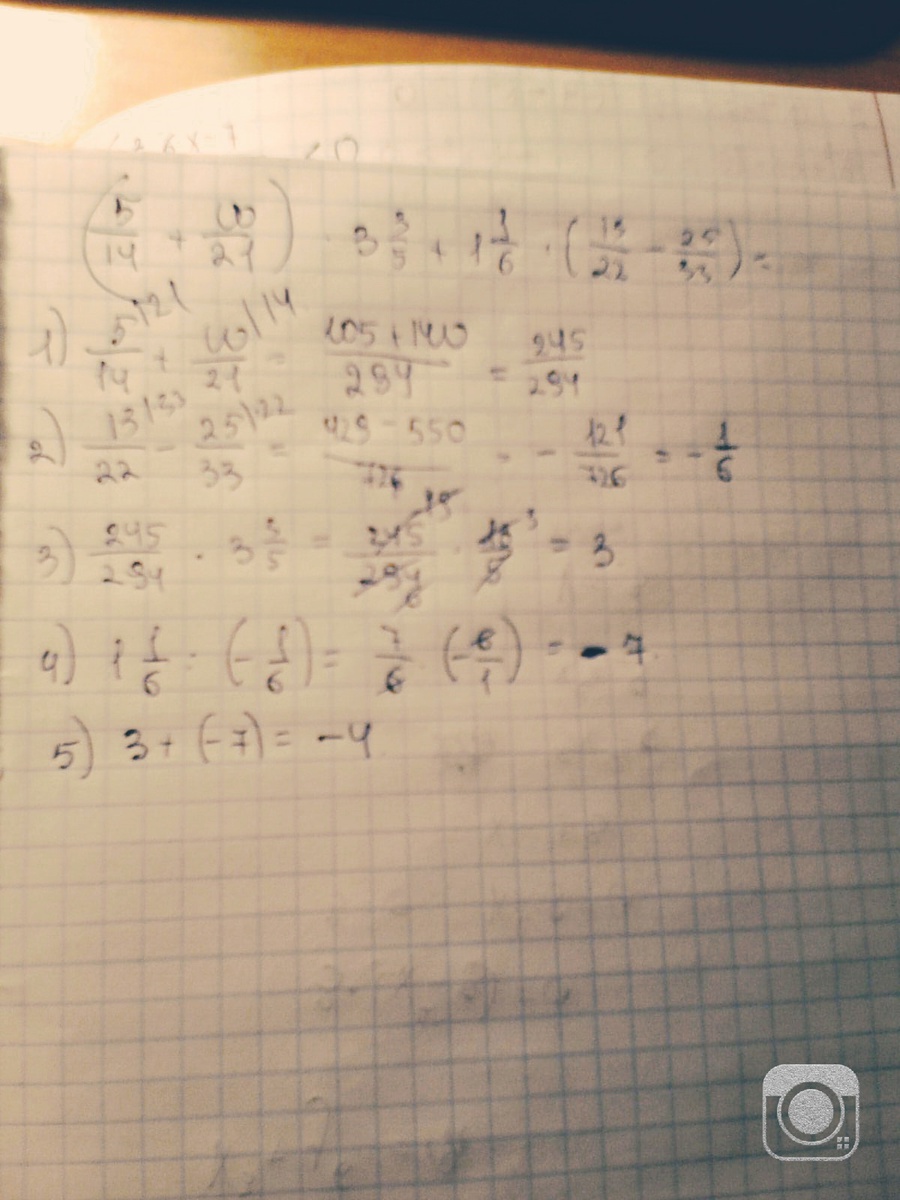 (5/14 + 10/21) · 3 3/5 + 1 1/6 · (13/22 − 25/33) =
1) 5/14 |21 + 10/21 |14 = 105+140/294 = 245/294
2) 13/22 |33 − 25/33 |22 = 429 − 550/726 = − 121/726 = − 1/6
3) 245/294 · 3 3/5 = 245/294 · 18/5 = 3
4) 1 1/6 : (− 1/6) = 7/6 (− 6/1) = − 7
5) 3 + (−7) = −4